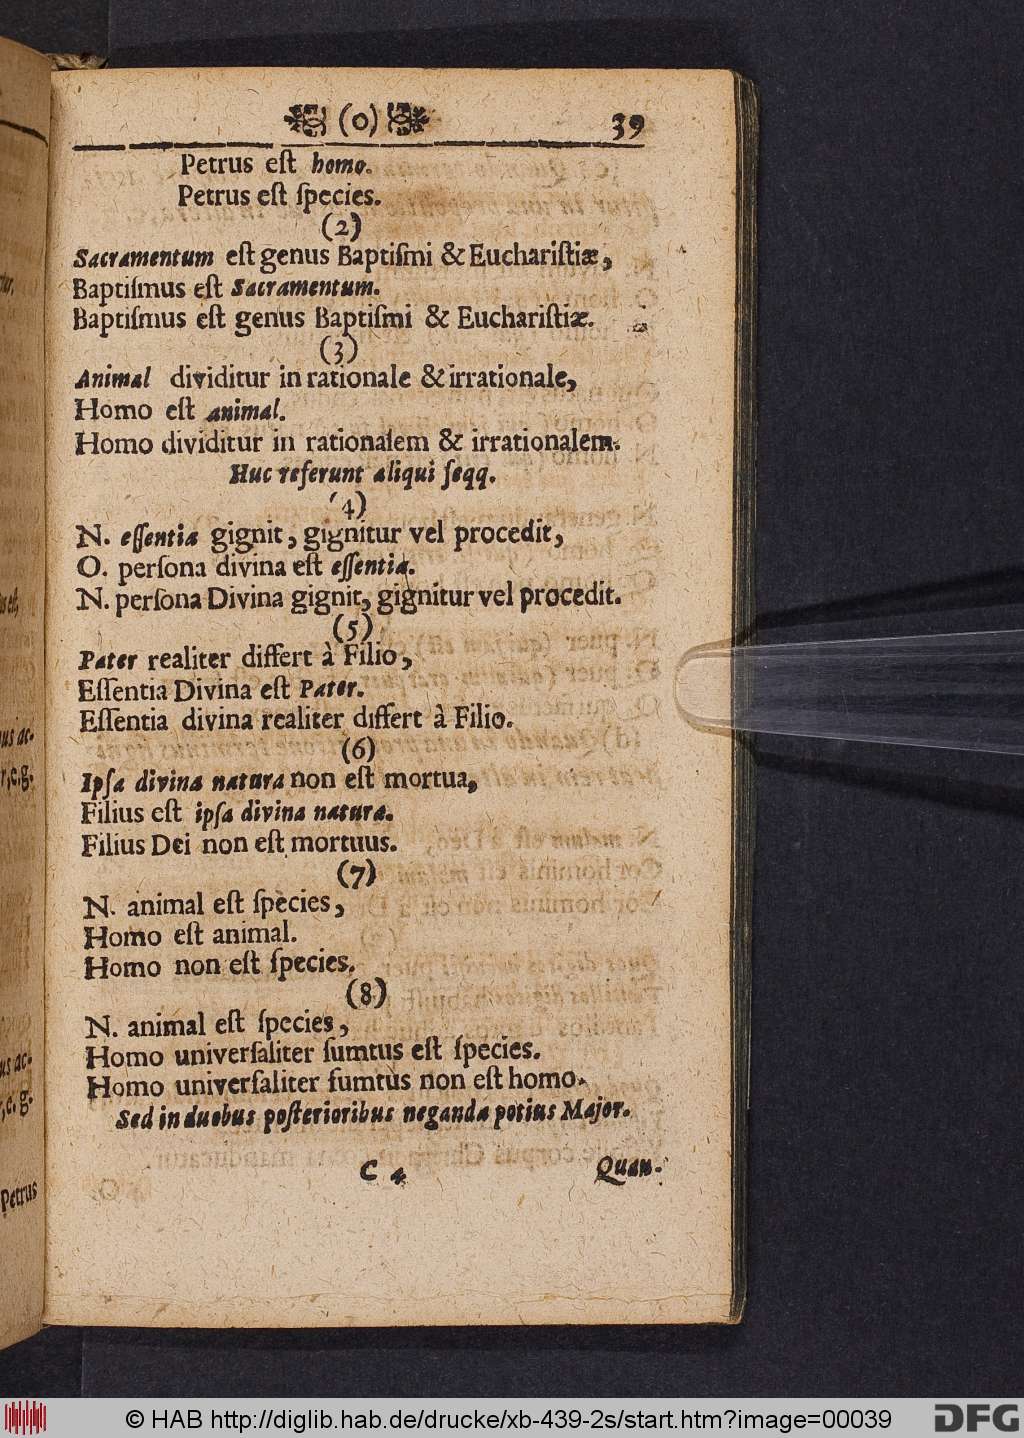 (o) 39
Petrus eſt homo.
Petrus eſt ſpecies.
(2)
Sacramentum eſt genus Baptiſmi & Euchariſtiæ,
Baptiſmus eſt Sacramentum.
Baptiſmus eſt genus Baptiſmi & Euchariſtiæ.
(3)
Animal dividitur in rationale & irrationale,
Homo eſt animal.
Homo dividitur in rationalem & irrationalem.
Huc referunt aliqui ſeqq.
(4)
N. eſſentia gignit, gignitur vel procedit,
O. perſona divina eſt eſſentia.
N. perſona Divina gignit, gignitur vel procedit.
(5)
Pater realiter differt à Filio,
Eſſentia Divina eſt Pater.
Eſſentia divina realiter differt à Filio.
(6)
Ipſa divina natura non eſt mortua,
Filius eſt ipſa divina natura.
Filius Dei non eſt mortuus.
(7)
N. animal eſt ſpecies,
Homo eſt animal.
Homo non eſt ſpecies.
(8)
N. animal eſt ſpecies,
Homo univerſaliter ſumtus eſt ſpecies.
Homo univerſaliter ſumtus non eſt homo.
Sed in duobus poſterioribus neganda potius Major.
C 4 Quan-
Petrus
© HAB http://diglib.hab.de/drucke/xb-439-2s/start.htm?image=00039
DFG